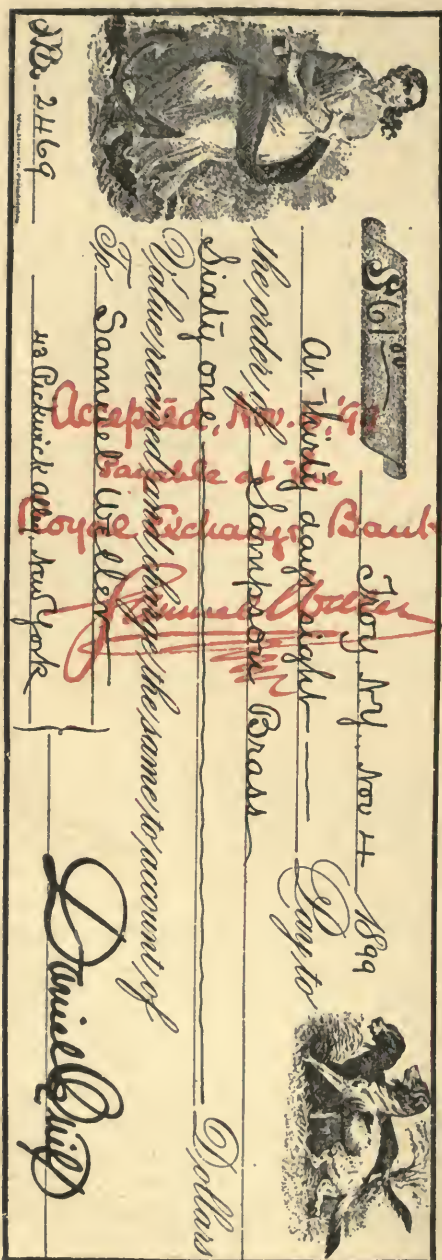 $61.00 Troy, N.Y., Nov 4 1899
At Thirty days sight Pay to
the order of Sampson Brass
Sixty one Dollars
Value received and charge the same to account of
To Samuel Weller
No. 2469 Pickwick alley, New York Daniel Quilp
Accepted, Nov. '99
Payable at the
Royal Exchange Bank
Samuel Weller